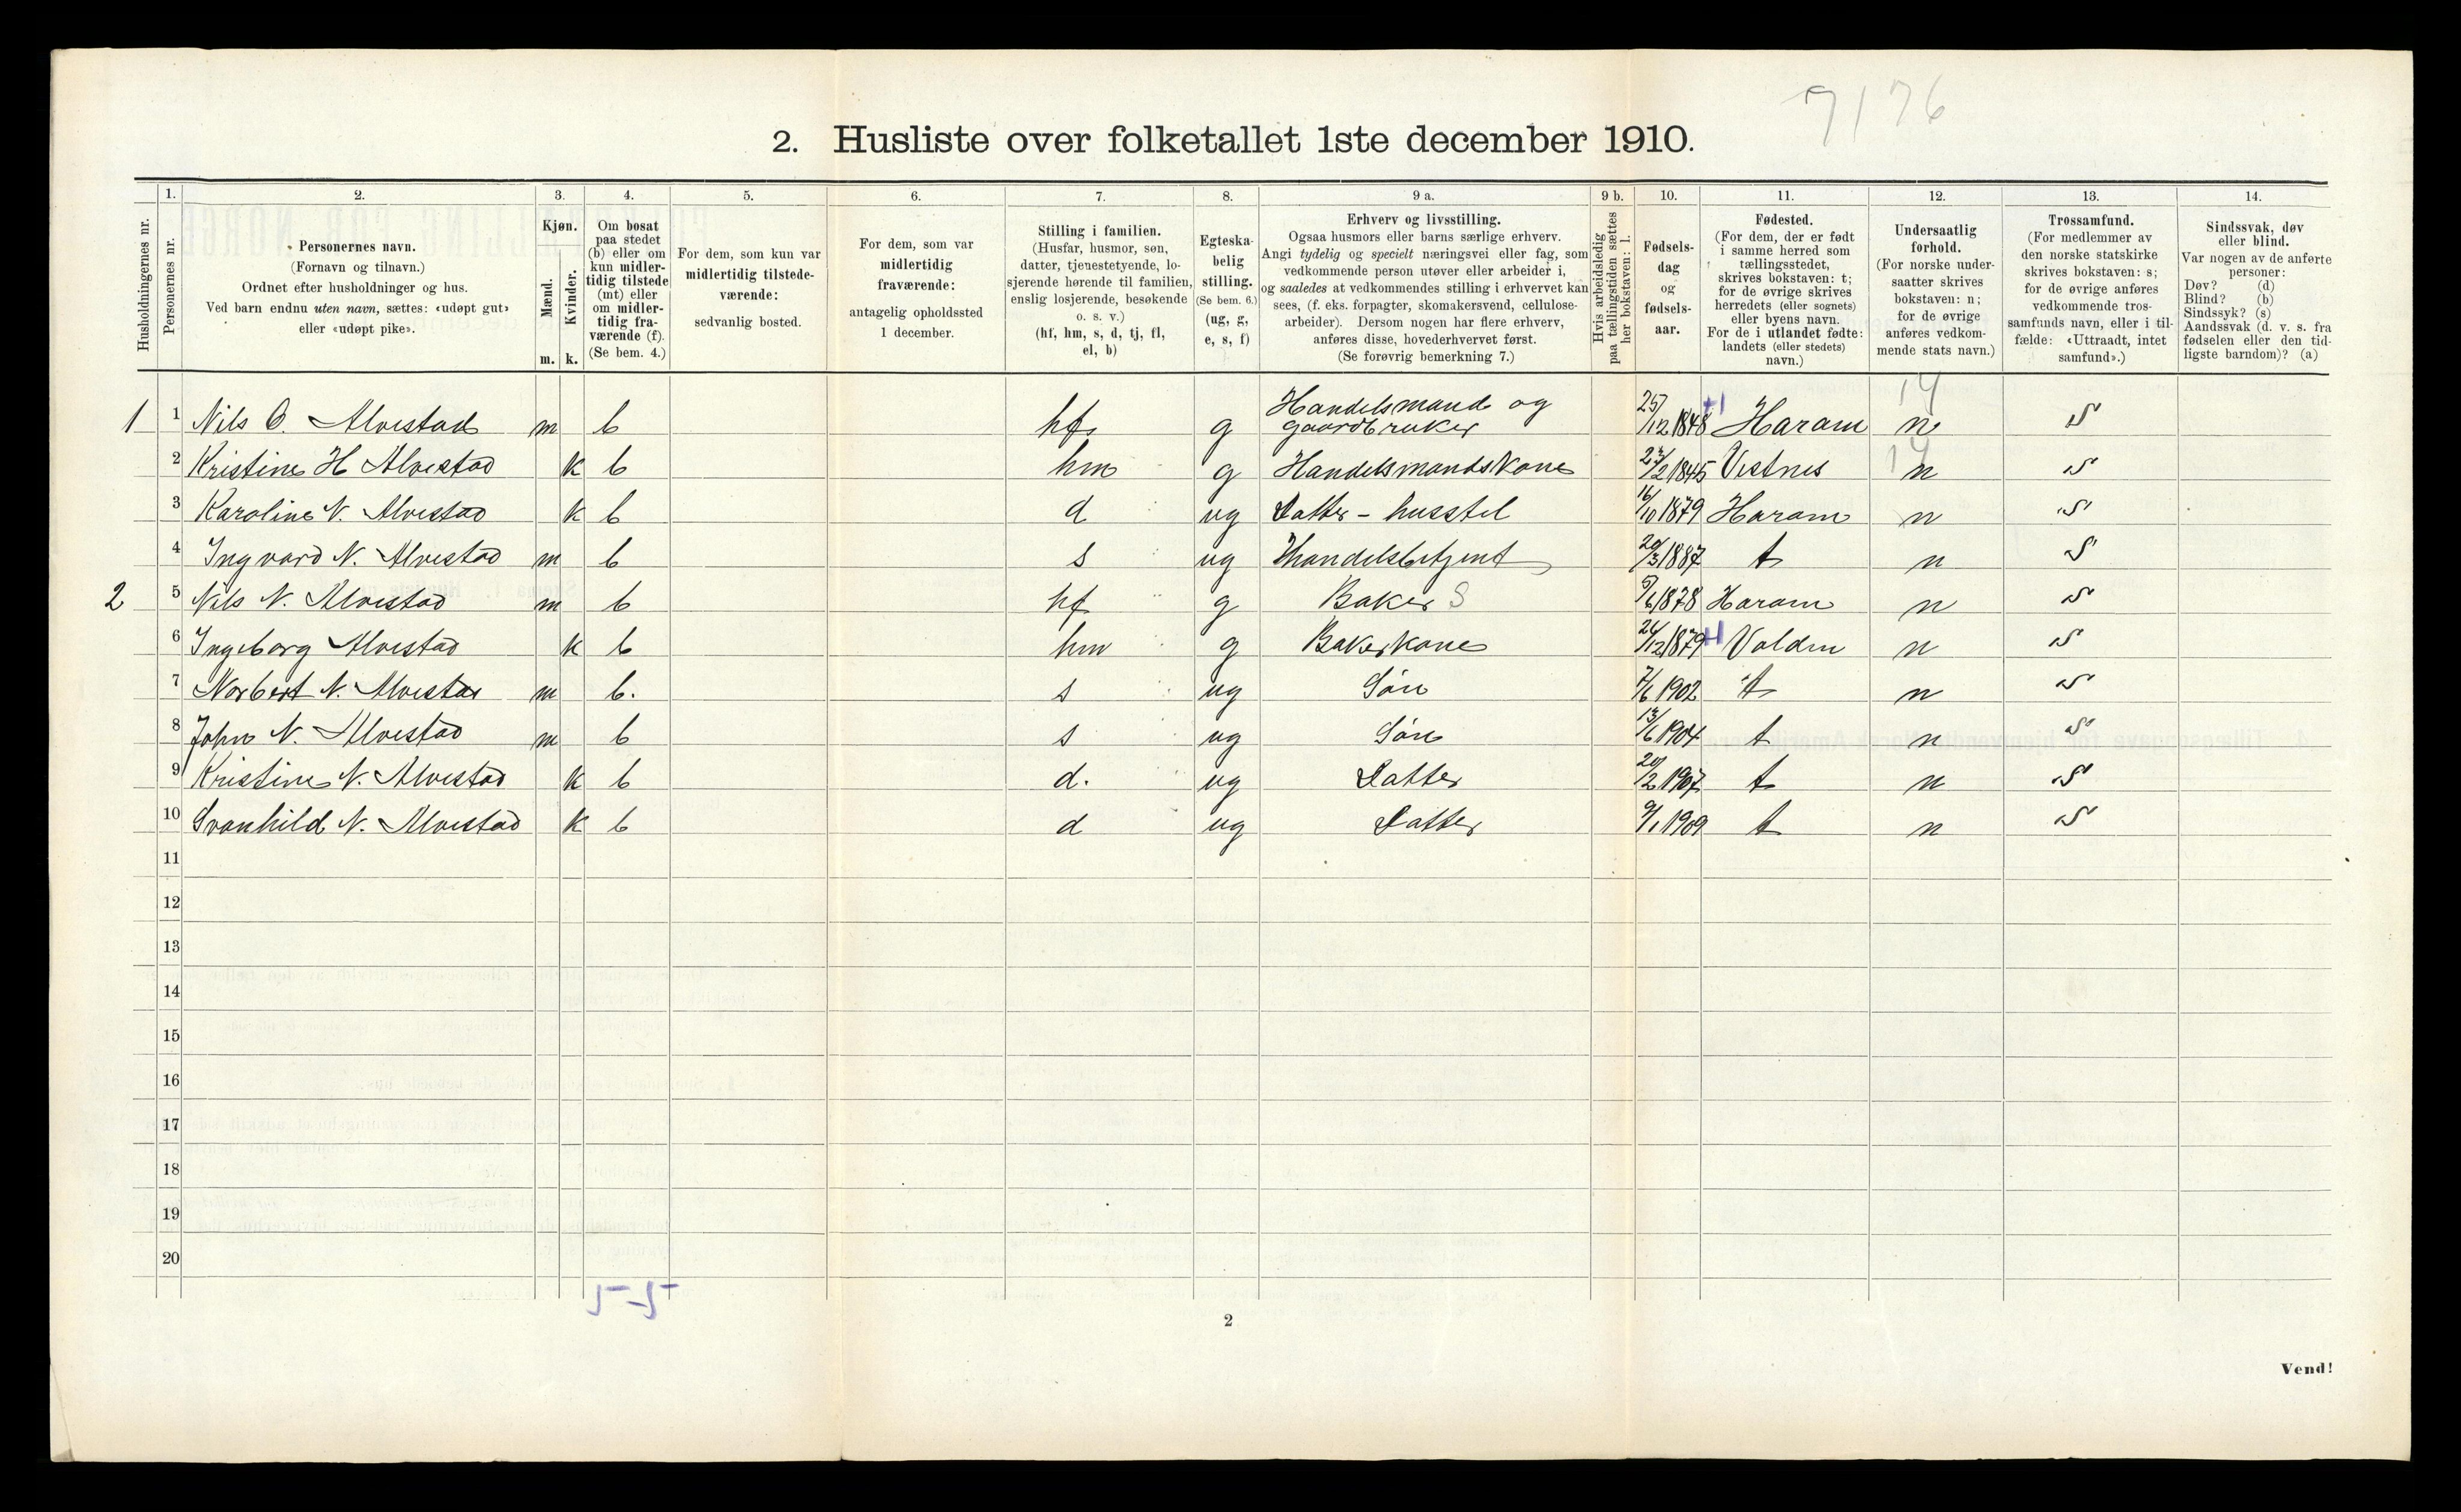 7176
2. Husliste over folketallet 1ste december 1910.
Husholdningernes nr.
1.
Personernes nr.
2.
Personernes navn.
(Fornavn og tilnavn.)
Ordnet efter husholdninger og hus.
Ved barn endnu uten navn, sættes: «udøpt gut»
eller «udøpt pike».
3.
Kjøn.
Mænd.
Kvinder.
m. k.
4.
Om bosat
paa stedet
(b) eller om
kun midler-
tidig tilstede
(mt) eller
om midler-
tidig fra-
værende (f).
(Se bem. 4.)
5.
For dem, som kun var
midlertidig tilstede-
værende:
sedvanlig bosted.
6.
For dem, som var
midlertidig
fraværende:
antagelig opholdssted
1 december.
7.
Stilling i familien.
(Husfar, husmor, søn,
datter, tjenestetyende, lo-
sjerende hørende til familien,
enslig losjerende, besøkende
o. s. v.)
(hf, hm, s, d, tj, fl,
el, b)
8.
Egteska-
belig
stilling.
(Se bem. 6.)
(ug, g,
e, s, f)
9 a.
Erhverv og livsstilling.
Ogsaa husmors eller barns særlige erhverv.
Angi tydelig og specielt næringsvei eller fag, som
vedkommende person utøver eller arbeider i,
og saaledes at vedkommendes stilling i erhvervet kan
sees, (f. eks. forpagter, skomakersvend, cellulose-
arbeider). Dersom nogen har flere erhverv,
anføres disse, hovederhvervet først.
(Se forøvrig bemerkning 7.)
9 b.
Hvis arbeidsledig
paa tællingstiden sættes
her bokstaven: l.
10.
Fødsels-
dag
og
fødsels-
aar.
11.
Fødested.
(For dem, der er født
i samme herred som
tællingsstedet,
skrives bokstaven: t;
for de øvrige skrives
herredets (eller sognets)
eller byens navn.
For de i utlandet fødte:
landets (eller stedets)
navn.)
12.
Undersaatlig
forhold.
(For norske under-
saatter skrives
bokstaven: n;
for de øvrige
anføres vedkom-
mende stats navn.)
13.
Trossamfund.
(For medlemmer av
den norske statskirke
skrives bokstaven: s;
for de øvrige anføres
vedkommende tros-
samfunds navn, eller i til-
fælde: «Uttraadt, intet
samfund».)
14.
Sindssvak, døv
eller blind.
Var nogen av de anførte
personer:
Døv? (d)
Blind? (b)
Sindssyk? (s)
Aandssvak (d. v. s. fra
fødselen eller den tid-
ligste barndom)? (a)
1 1 Nils O. Alvestad m b hf g Handelsmand og gaardbruker 25/12 1848 Haram n S
2 Kristine H Alvestad k b hm g Handelsmandskone /2 1845 Vestnes n S
3 Karoline N. Alvestad k b d ug Datter - husstel 16/10 1879 Haram n S
4 Ingvard N. Alvestad m b s ug Handelsbetjent 20/3 1887 t n S
2 5 Nils N. Alvestad m b hf g Baker S 5/6 1878 Haram n S
6 Ingeborg Alvestad k b hm g Bakerkone /12 1879 Volden n S
7 Norbert N. Alvestad m b. s ug Søn 7/6 1902 t n S
8 John N. Alvestad m b s ug Søn 13/6 1904 t n S
9 Kristine N. Alvestad k b d. ug Datter 20/2 1907 t n S
10 Svanhild N. Alvestad k b d ug Datter 9/1 1909 t n S
11
12
13
14
15
16
17
18
19
20
5-5
2
Vend!